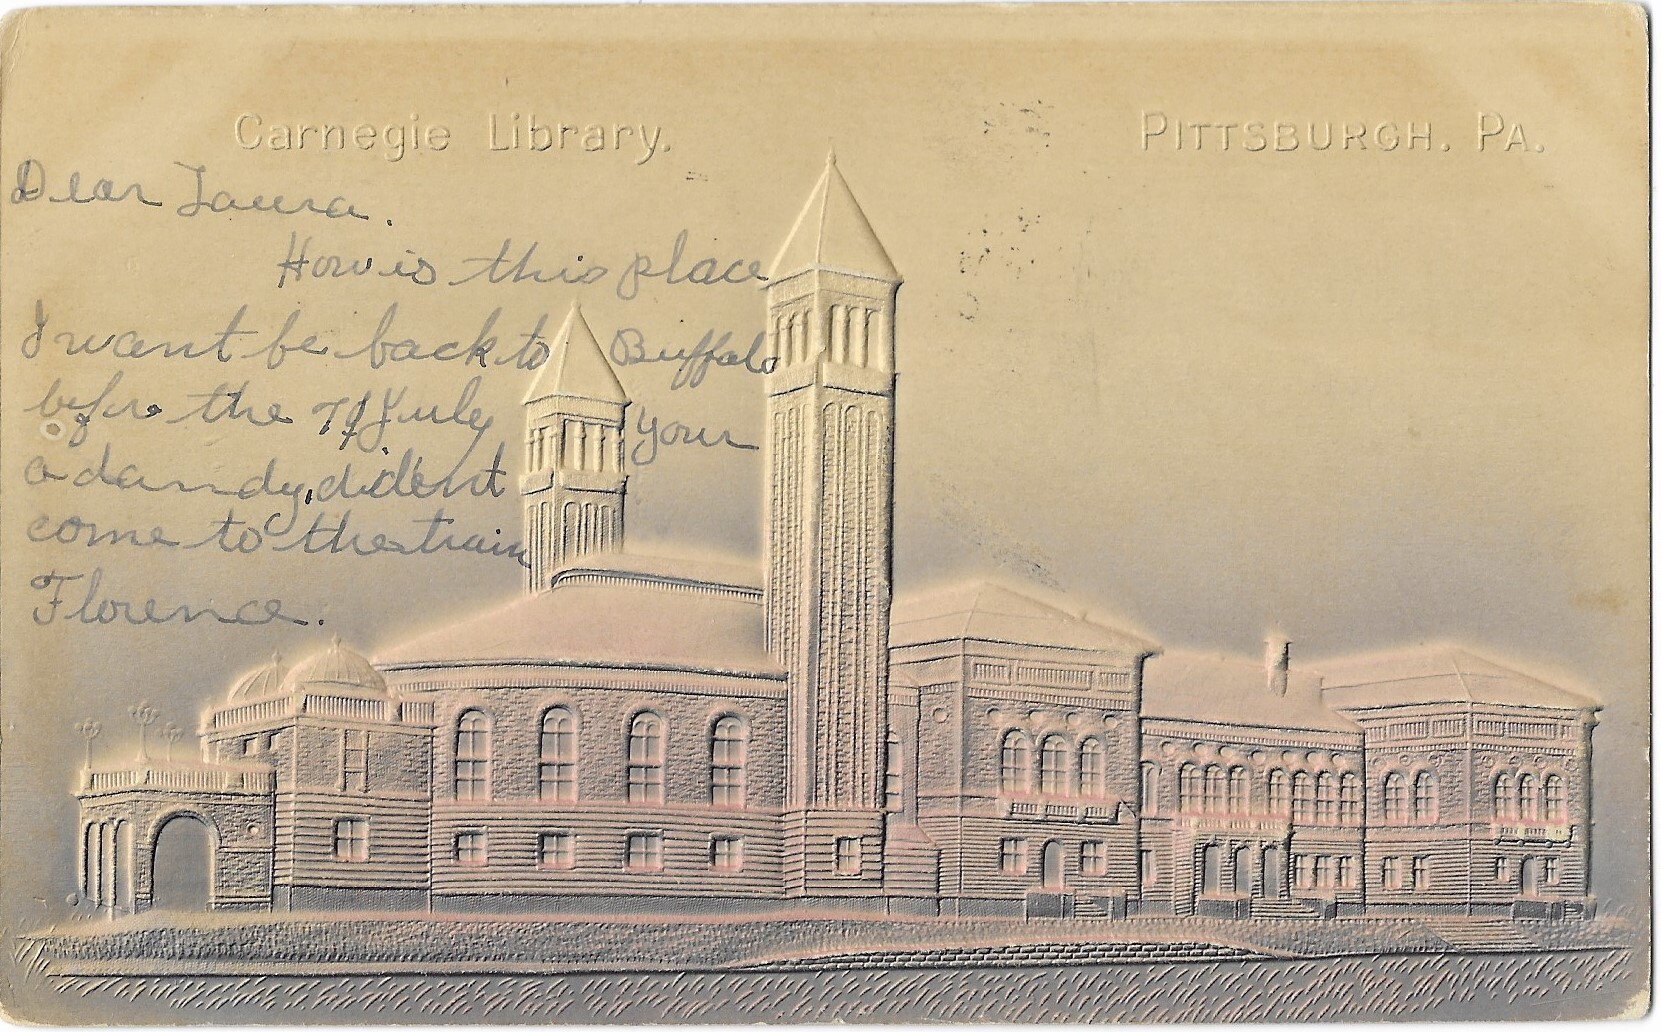 Carnegie Library.
PITTSBURGH. PA.
Dear Laura.
How is this place
I want be back to Buffalo
before the 7 of July your
a dandy, dident
come to the train
Florence.